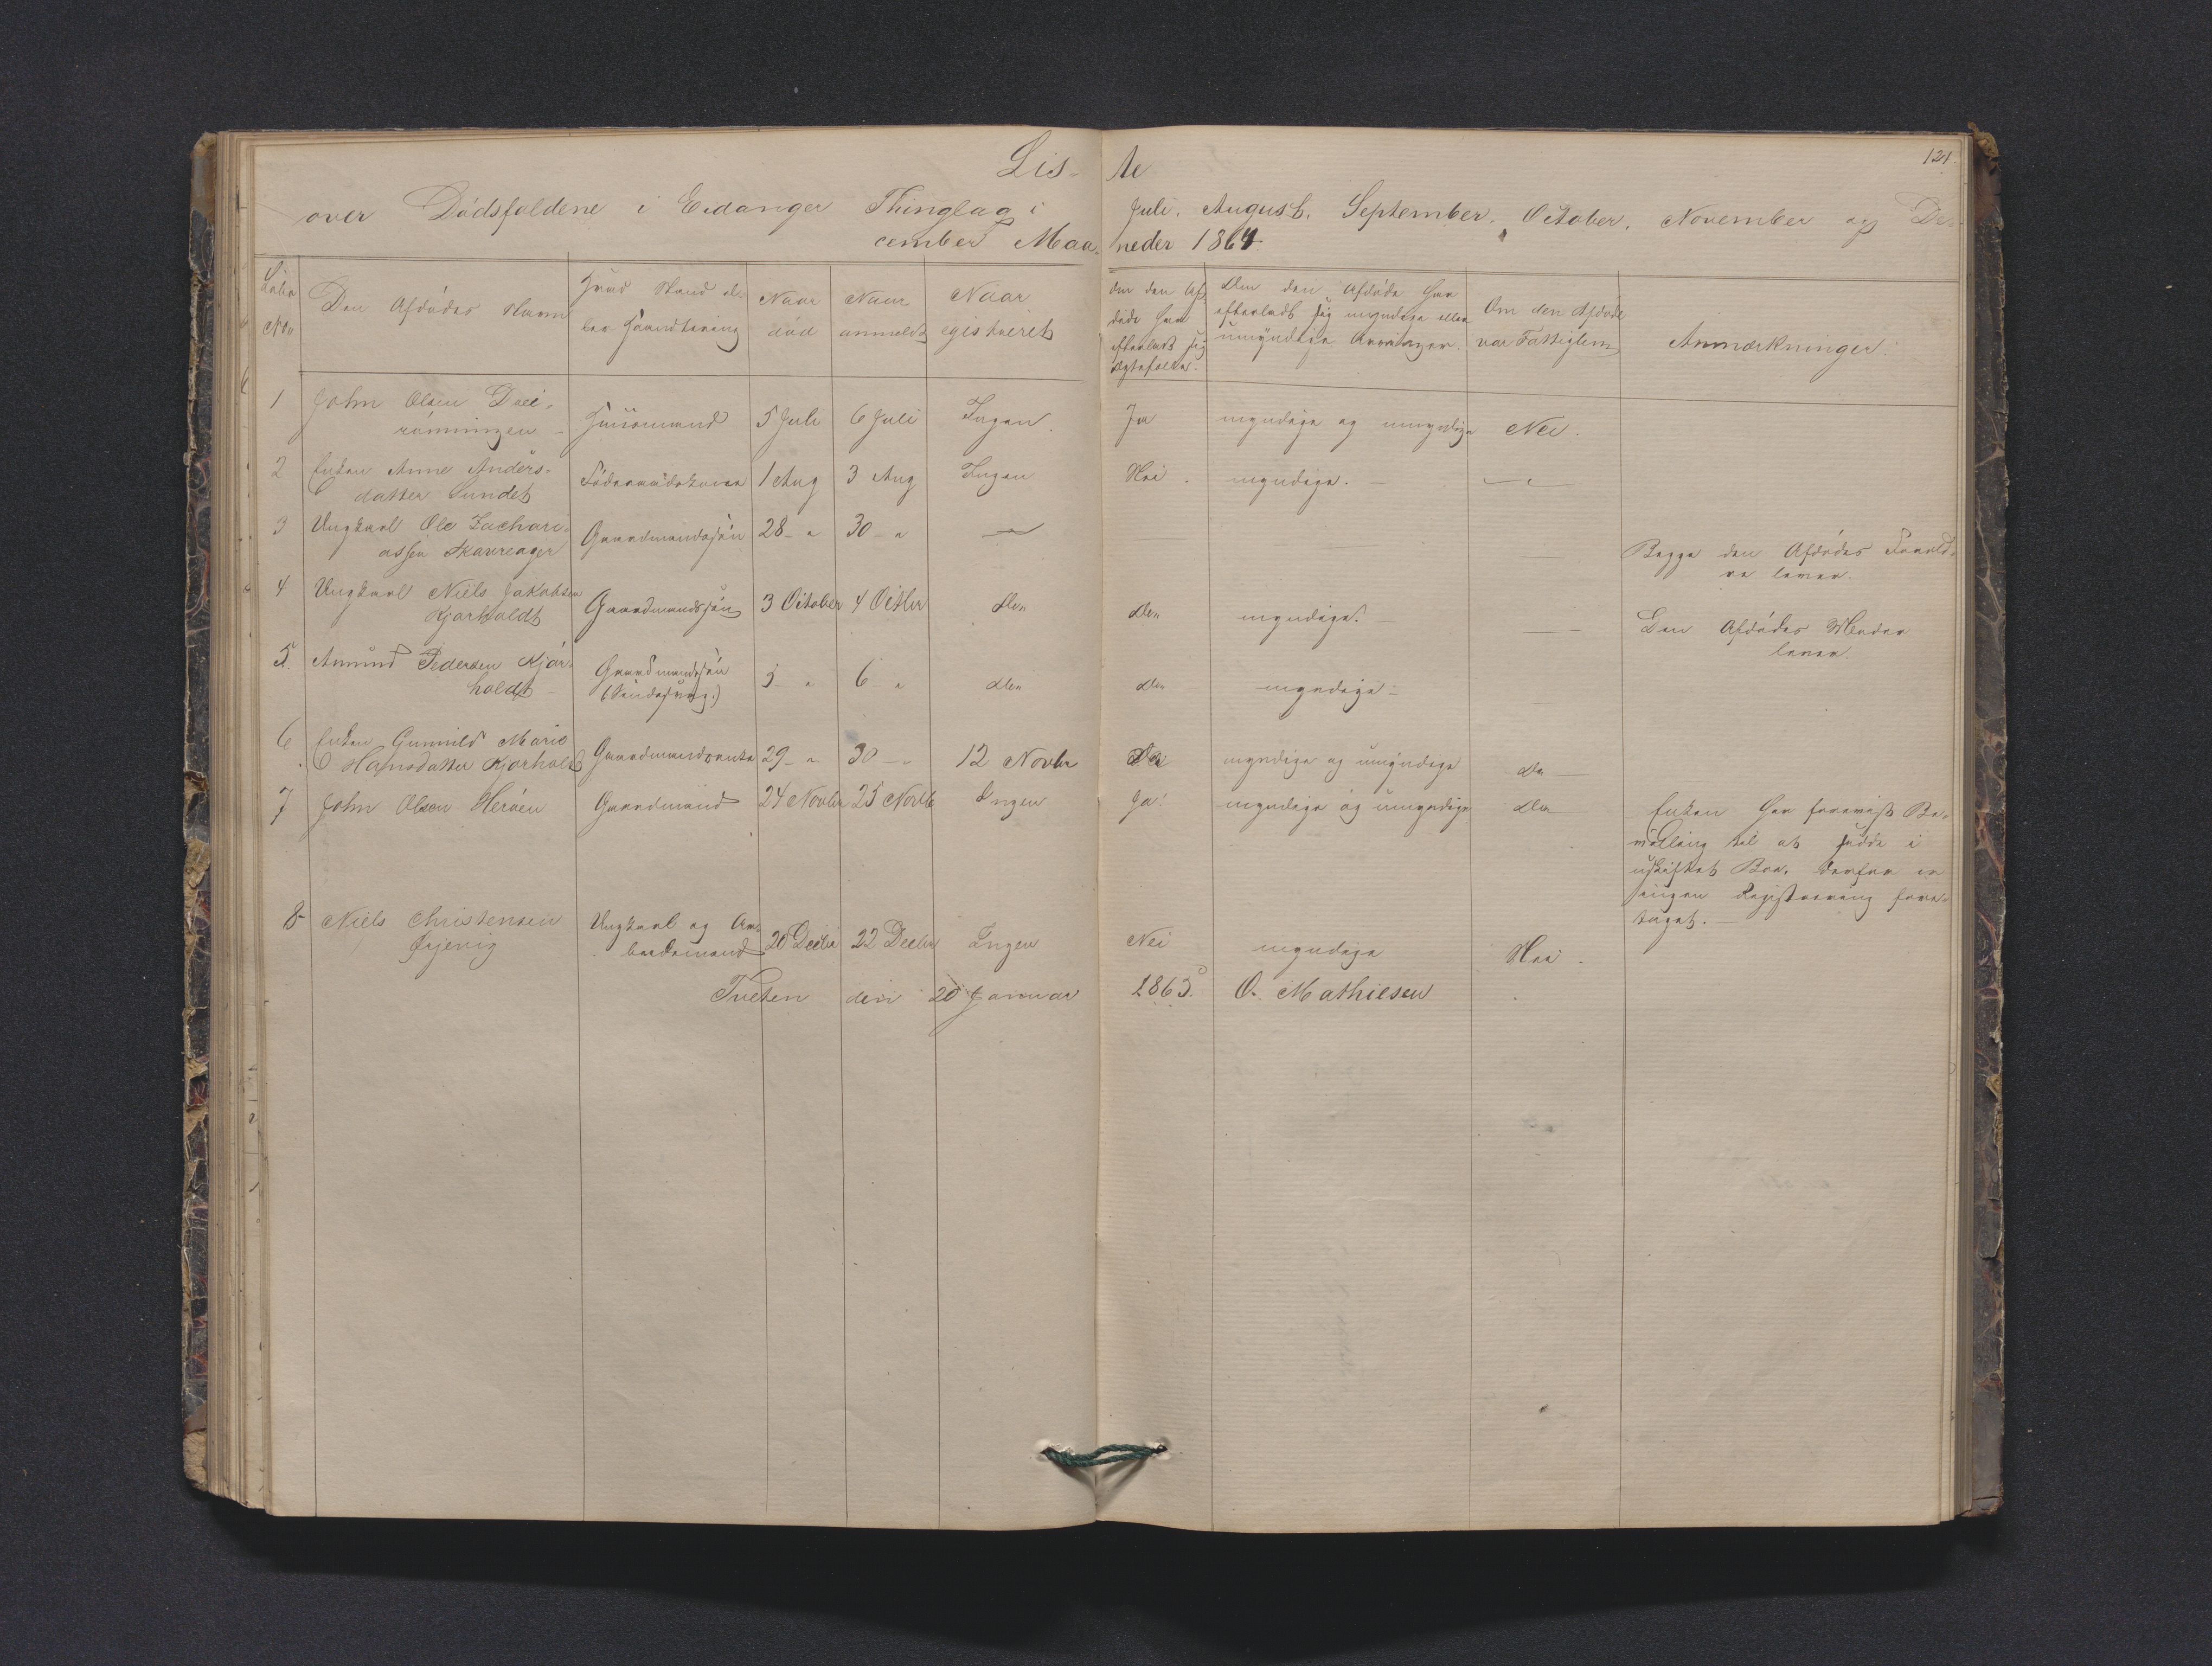 121
Liste
over Dødsfaldene i Eidanger Thinglag i Juli, August, September, October, November og De-
cember Maaneder 1864
Løbe No
Den Afdødes Navn
Hvad Stand el-
ler Haandtering
Naar død
Naar anmeldt
Naar egistreret
Om den Af-
døde har
efterladt sig
Ægtefælle.
Om den Afdøde har
efterladt sig myndige eller
umyndige Arvinger.
Om den Afdøde
var Fattiglem
Anmærkninger
1 John Olsen
rømningen - Huusmand 5 Juli 6 Juli Ingen. Ja myndige og umyndige Nei.
2 Enken Anne Anders-
datter Sundet Føderaadskone 1 Aug 3 Aug Ingen Nei. myndige. -
3 Ungkarl Ole Zachari-
assen Skavreager Gaardmandssøn 28 - " 30 - " — Begge den Afdødes Foræld-
re lever.
4 Ungkarl Niels Jakobsen
Kjørholdt Gaardmandssøn 3 October 4 Octbr do do myndige. — Den Afdødes Moder
lever.
5. Anund Pedersen Kjør-
holdt - Gaardmandssøn
5 - " 6 - " do do myndige -
6 Enken Gunnild Marie
Hansdatter Kjørholdt Gaardmandsenke 29 - " 30 - " 12 Novbr Nei myndige og umyndige do
7 John Olsen Herøen Gaardmand 24 Novbr 25 Novbr Ingen Ja! myndige og umyndige do Enken har foreviist Be-
villing til at sidde i
uskiftet Boe, derfor er
ingen Registrering fore-
taget. -
8 - Niels Christensen
Ørjevig Ungkarl og Ar-
beidsmand 20 Decbr 22 Decbr Ingen Nei myndige Nei.
Tveten den 20 Januar 1865. O. Mathiesen